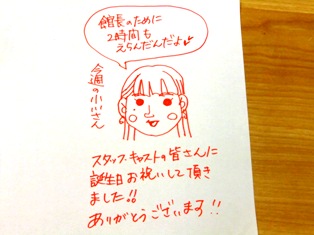 館長のために
2時間も
えらんだんだよ
今週の小いさん
スタッフ・キャストの皆さんに
誕生日お祝いして頂き
ました!!
ありがとうございます!!